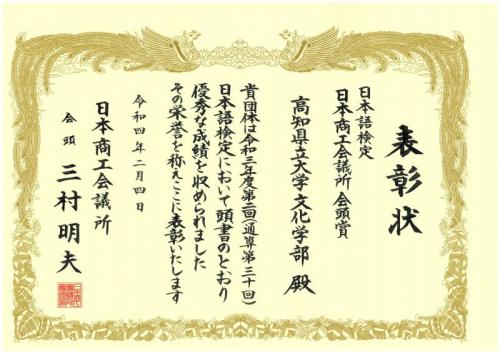 表彰状
日本語検定
日本商工会議所 会頭賞
高知県立大学文化学部 殿
貴団体は令和三年度第二回(通算第三十回)
日本語検定において頭書のとおり
優秀な成績を収められました
その栄誉を称えここに表彰いたします
令和四年二月四日
日本商工会議所
会頭 三村明夫